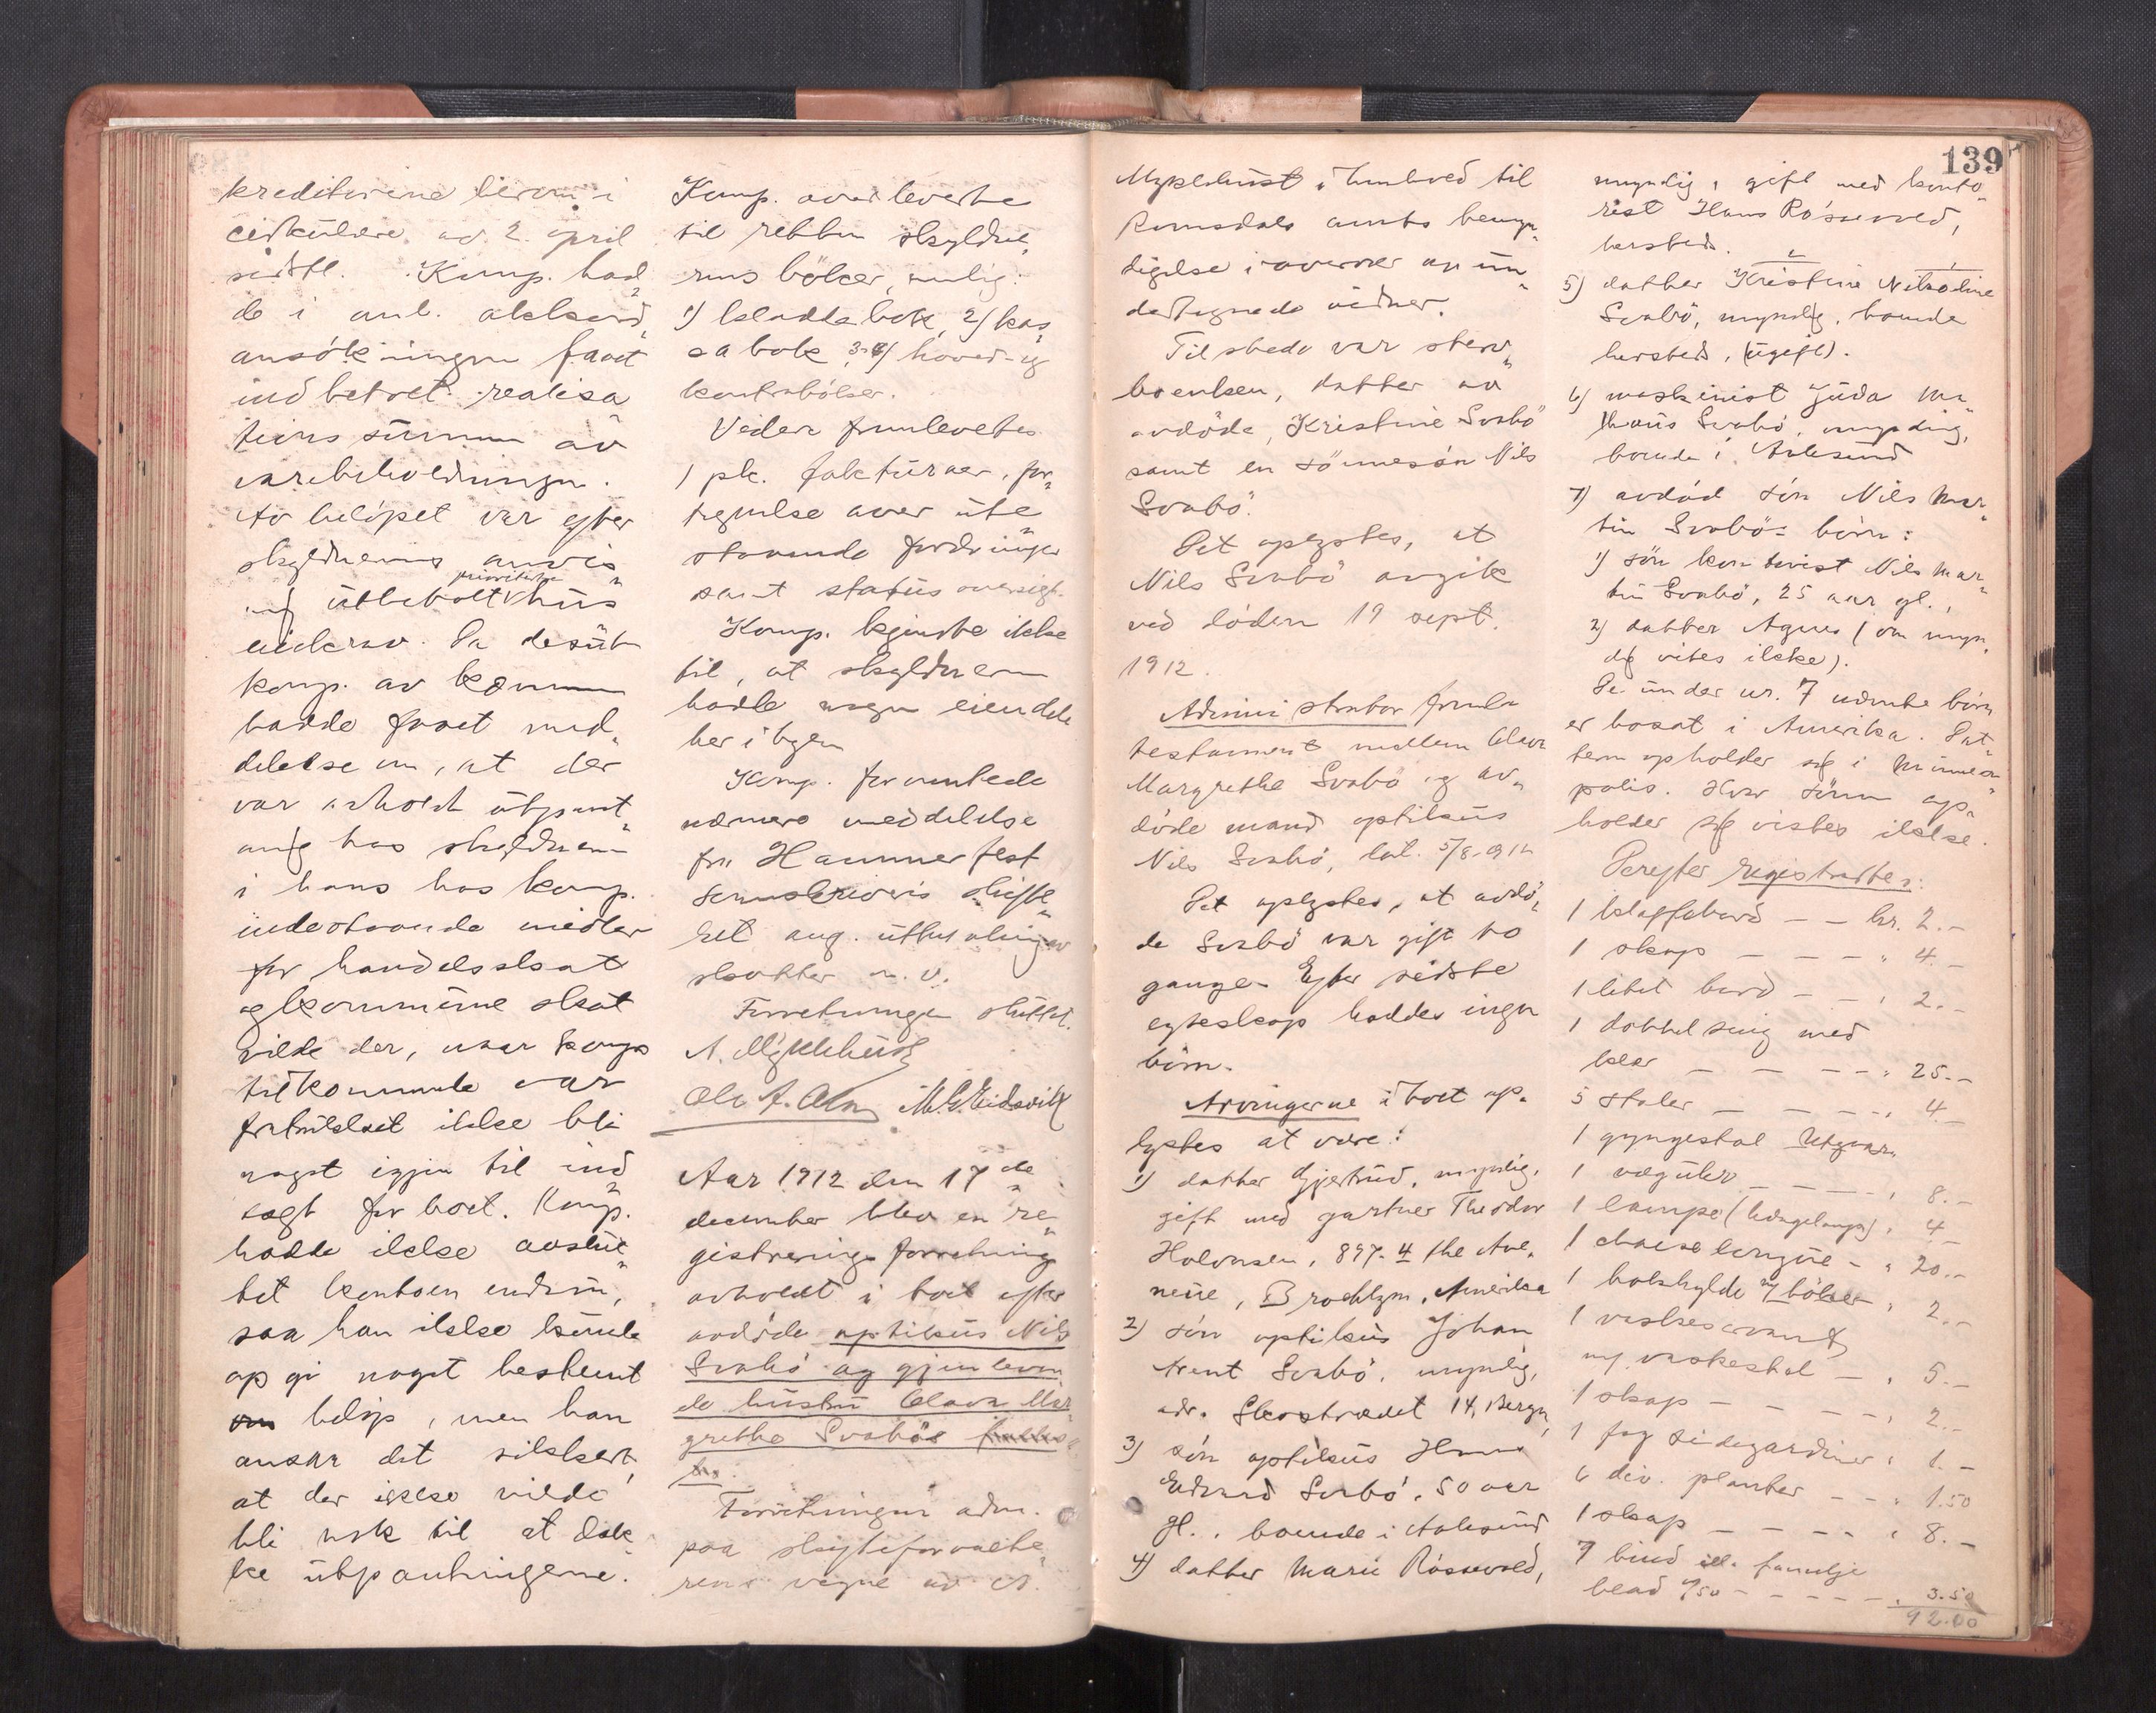 kreditorene herom i
cirkulære av 2. april
sidstl. Komp. had„
de i anl. akkord„
ansökningen faat
indbetalt realisa
tions summen av
varebeholdningen.
Av belöpet var efter
skyldnerens anvis„
ning utbetalt prioritetshus
leiekrav. Da desuten
komp. av kæmn
hadde faaet med„
delelse om, at der
var avholdt utpant„
ning hos skyldneren
i hans hos komp.
indestaaende midler
for handelsskat
og kommune skat
vilde der, naar komp
tilkommende var
fratrukket ikke bli
noget igjen til ind„
tægt for boet. Komp.
hadde ikke avslut„
tet kontoen endnu,
saa han ikke kunde
op gi noget bestemt
belöp, men han
ansaa det sikkert,
at der ikke vilde
bli nok til at dæk„
ke utpantningene.
Komp. overleverte
til retten skyldne„
rens böker, nemlig:
1) kladdebok, 2) kas„
sa bok, 3-4) hoved- og
kontrabøker.
Videre fremlevertes
1 pk. fakturaer, for„
tegnelse over ute„
staaende fordringer
samt status oversigt.
Komp. kjendte ikke
til, at skyldneren
hadde nogen eiendele
her i byen
Komp. forventede
nærmere meddelelse
fra Hammerfest
sorenskriveris skifte„
ret ang. utbetalingen av
skatter m. v.
Forretningen sluttet.
A. Myklebust
Ole A. Alm M. G. Eidsvik
Aar 1912 den 17de
december blev en re„
gistrerings forretning
avholdt i boet efter
avdöde optikus Nils
Svabö og gjenleven„
de hustru Olava Mar„
grethe Svabös
Forretningen adm.
paa skifteforvalte„
rens vegne av A.
Myklebust i henhold til
Romsdals amts bemyn„
digelse i overvær av un„
dertegnede vidner.
Tilstede var sterv„
boenken, datter av
avdöde, Kristine Svabö
samt en sönnesön Nils
Svabö.
Det oplystes, at
Nils Svabö avgik
ved döden 19 sept.
1912.
Administrator fremla
testament mellem Olava
Margrethe Svabö og av„
döde mand optikus
Nils Svabö, dat. 5/8-1912
Det oplystes, at avdö„
de Svabö var gift to
ganger. Efter sidste
egteskap haddes ingen
börn.
Arvingerne i boet op„
lystes at være:
1) datter Gjertrud, myndig,
gift med gartner Theodor
Halvorsen, 897. 4 the Ave„
neue, Brooklyn, Amerika
2) sön optikus Johan
Arent Svabö, myndig,
adr. Skostrædet 14, Bergen,
3) sön optikus Hans
Edvard Svabö, 50 aar
gl., boende i Aalesund
4) datter Marie Rössevold,
139
myndig, gift med konto„
rist Hans Rössevold,
hersteds.
5) datter Kristine Nilsodine
Svabö, myndig, boende
hersteds, (ugift).
6) maskinist Juda Ma„
thæus Svabö, myndig,
boende i Aalesund
7) avdöd sön Nils Mar„
tin Svabö's börn:
1) sön kontorist Nils Mar„
tin Svabö, 25 aar gl.,
2) datter Agnes (om myn„
dig vites ikke).
De under nr. 7 nævnte börn
er bosat i Amerika. Dat„
teren opholder sig i Minnea„
polis. Hvor sönnen op„
holder sig vistes ikke.
Derefter registrertes:
1 klaffebord – – kr. 2.–
1 skap – – – „ 4.–
1 litet bord – – „ 2.–
1 dobbelseng med
klær – – – – „ 25.–
5 stoler – – – „ 4.–
1 gyngestol Utgaar.
1 vægur – – – „ 8.–
1 lampe (hængelampe) „ 4.–
1 chaise longue – „ 20.–
1 bokhylde m/ böker „ 2.–
1 vaskeservant
m/ vaskestel – „ 5.–
1 skap – – – – „ 2.–
1 fag sidegardiner „ 1.–
6 div. planter – – „ 1.50
1 skap – – – – „ 8.–
7 bind ill. familje
blad %50 – – – – „ 3.50
92.00